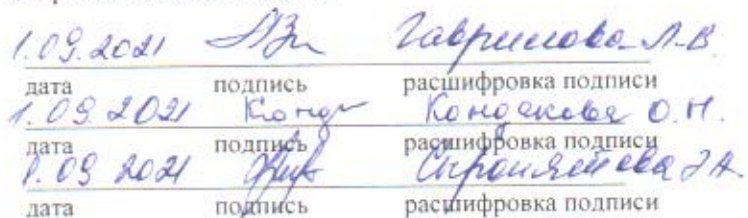 1.09.2021 Гаврилова Л.В.
дата подпись расшифровка подписи
1.09.2021 Конд Кондакова О.Н.
дата подпись расшифровка подписи
1.09 2021
дата подпись расшифровка подписи